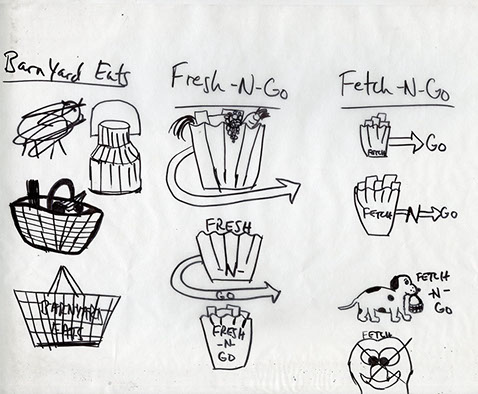 BarnYard Eats
BARNYARD
EATS
Fresh-N-Go
FRESH
-N-
GO
FRESH
-N-
GO
Fetch-N-Go
FETCH
GO
FETCH
N
GO
FETCH
-N-
GO
FETCH